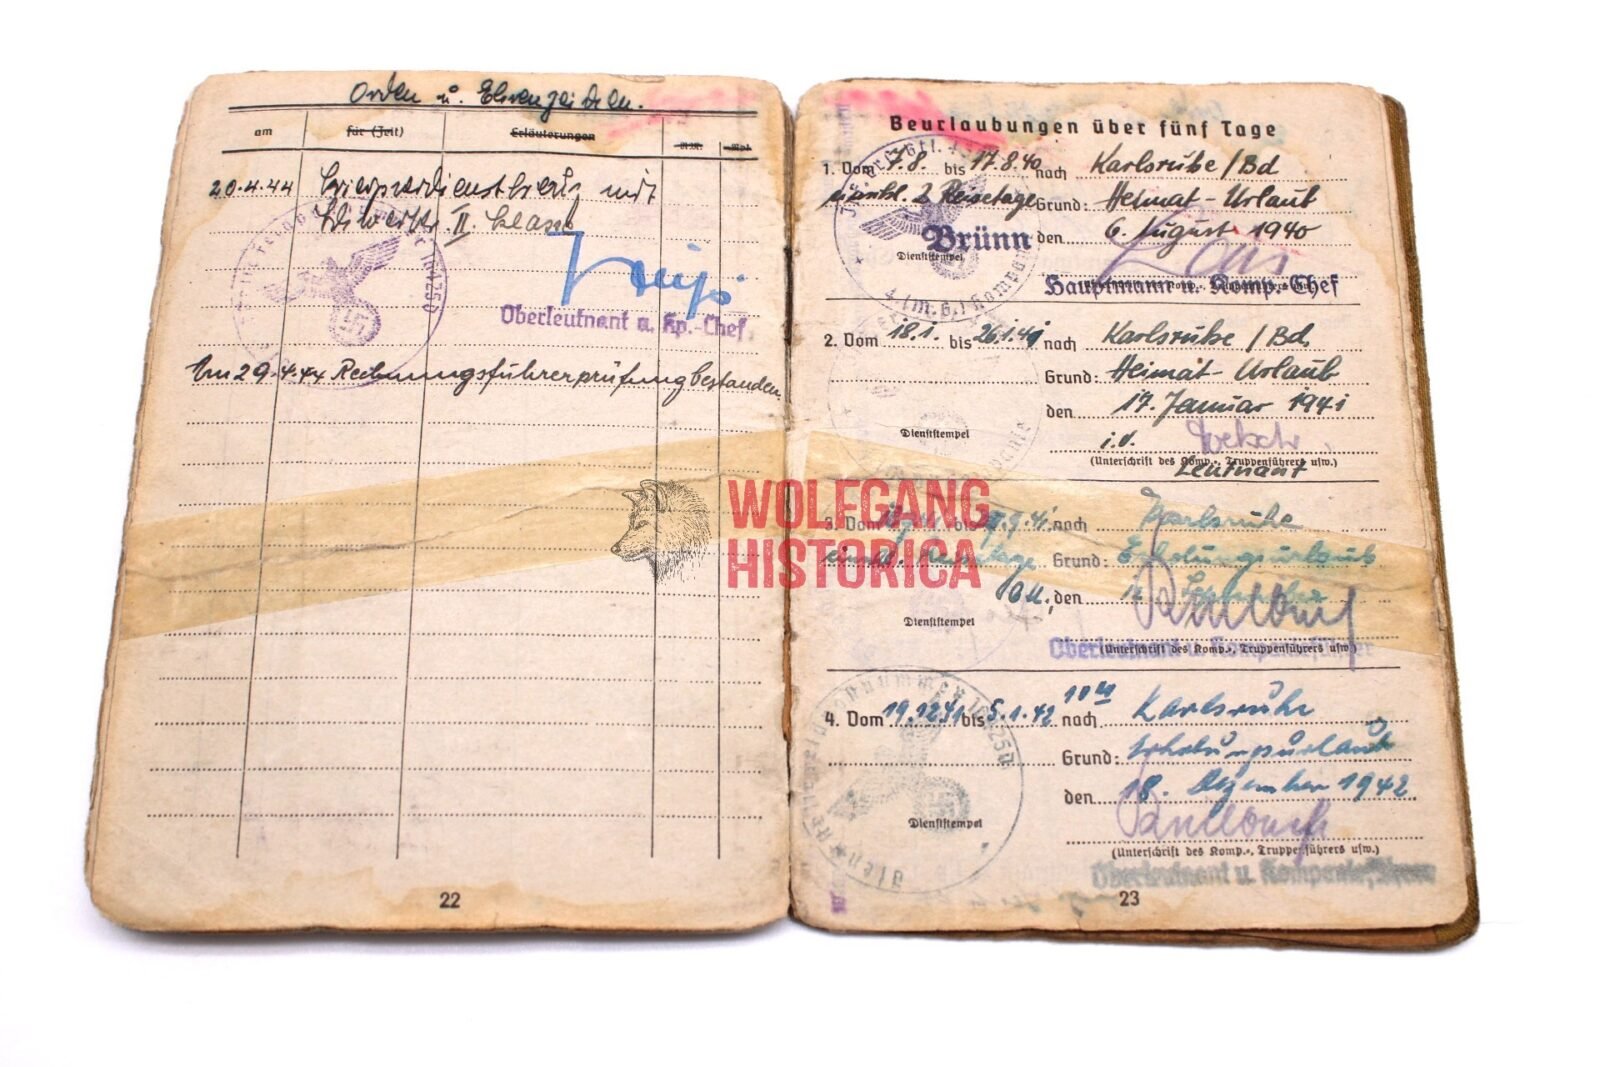 Orden u. Ehrenzeichen.
am für (Zeit) Erläuterungen
20.4.44 Kriegsverdienstkreuz mit
Schwertern II. Klasse
Oberleutnant u. Kp.-Chef
Am 29.4.44 Rechnungsführerprüfung bestanden.
22
Beurlaubungen über fünf Tage
1. Vom 7.8. bis 17.8.40 nach Karlsruhe/Bd
einschl. 2 Reisetage Grund: Heimat-Urlaub
Brünn den 6. August 1940
Dienststempel
Hauptmann u. Komp.-Chef
4. (M.G.) Kompanie
2. Vom 18.1. bis 26.1.41 nach Karlsruhe/Bd.
Grund: Heimat-Urlaub
den 17. Januar 1941
Dienststempel i.V.
(Unterschrift des Komp.-, Truppenführers usw.)
Leutnant
WOLFGANG
HISTORICA
3. Vom bis 9.41 nach Karlsruhe
Reisetage Grund: Erholungsurlaub
O.U., den 12. September
Dienststempel
(Unterschrift des Komp.-, Truppenführers usw.)
Oberleutnant u. Kompanieführer
4. Vom 19.12.41 bis 5.1.42 nach Karlsruhe
Grund: Erholungsurlaub
den 18. Dezember 1942
Dienststempel
(Unterschrift des Komp.-, Truppenführers usw.)
Oberleutnant u. Kompanieführer
23